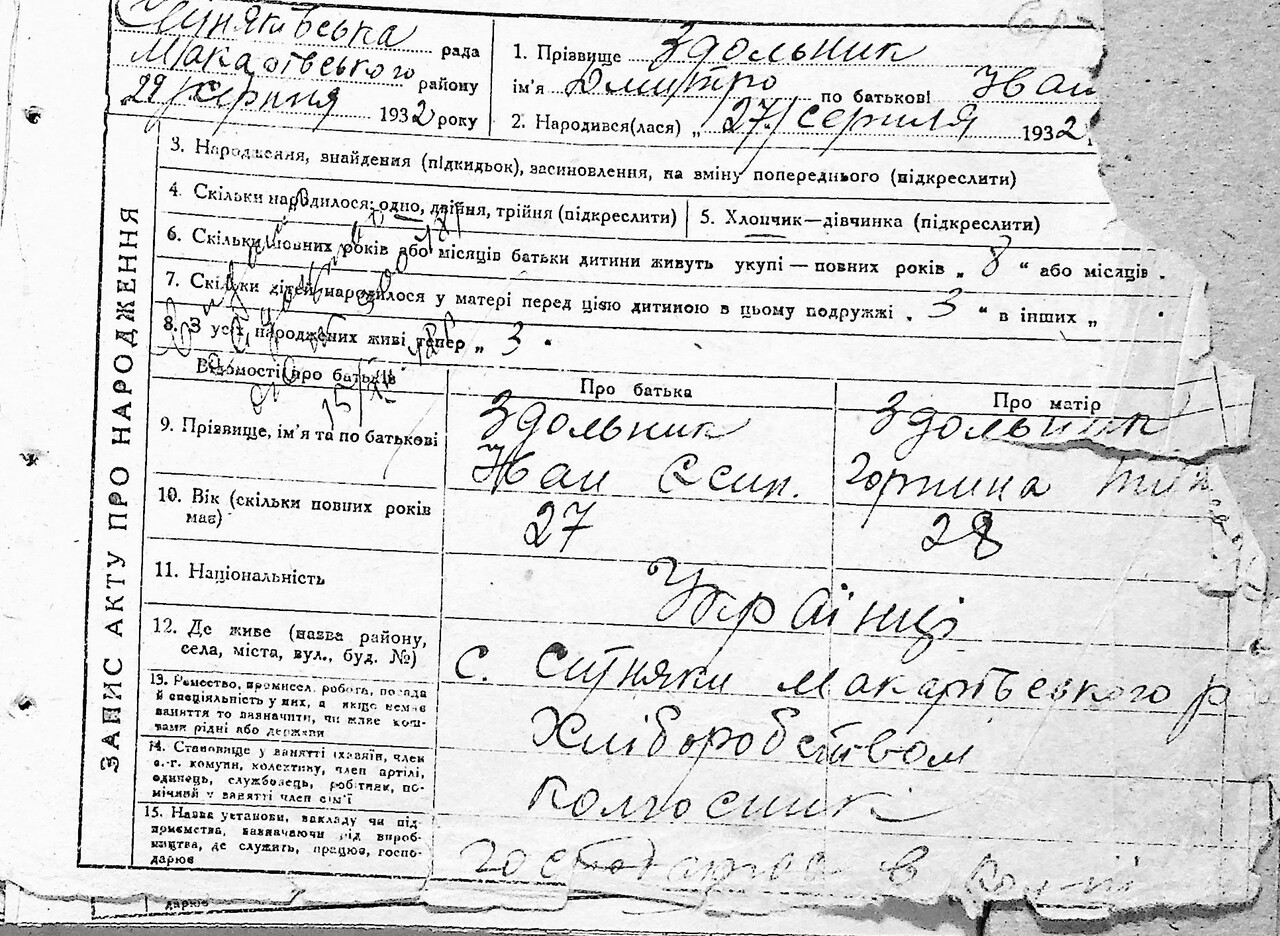 Ситняківська рада
Макарівського району
29/серпня 1932 року
1. Прізвище Здольник
ім'я Дмитро по батькові Іван
2. Народився(лася) „ 27/ серпня 1932
ЗАПИС АКТУ ПРО НАРОДЖЕННЯ
3. Народження, знайдення (підкидьок), засиновлення, на зміну попереднього (підкреслити)
4. Скільки народилося: одно, двійня, трійня (підкреслити)
5. Хлопчик—дівчинка (підкреслити)
6. Скільки повних років або місяців батьки дитини живуть укупі — повних років „ 8 “ або місяців .
7. Скільки дітей народилося у матері перед цією дитиною в цьому подружжі „ 3 “ в інших „
8. З усіх народжених живі тепер „ 3 “
15/XI
Відомості про батьків
Про батька
Про матір
9. Прізвище, ім'я та по батькові
Здольник
Іван Єсип.
Здольник
Горпина
10. Вік (скільки повних років має)
27
28
11. Національність
Українці
12. Де живе (назва району, села, міста, вул., буд. №)
с. Ситняки Макарівського р
13. Ремество, промисел, робота, посада й спеціяльність у них, а якщо немає заняття то зазначити, чи живе коштами рідні або держави
Хліборобством
14. Становище у занятті (хазяїн, член с.-г. комуни, колективу, член артілі, одинець, службовець, робітник, помічний у занятті член сім'ї
Колгосник
15. Назва установи, закладу чи підприємства, зазначаючи рід виробництва, де служить, працює, господарює
господарює в
дарює